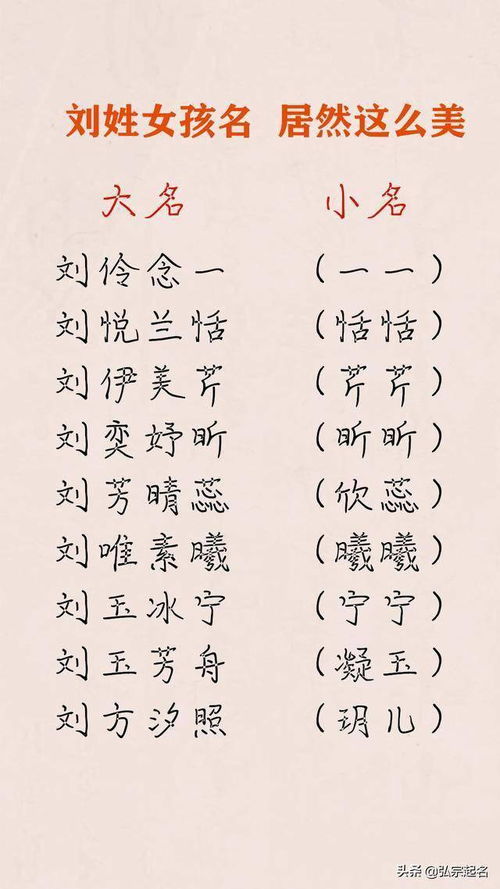 刘姓女孩名 居然这么美
大名 小名
刘伶念一 (一一)
刘悦兰恬 (恬恬)
刘伊美芹 (芹芹)
刘奕妤昕 (昕昕)
刘芳晴蕊 (欣蕊)
刘唯素曦 (曦曦)
刘玉冰宁 (宁宁)
刘玉芳舟 (凝玉)
刘方汐照 (玥儿)
头条@弘宗起名